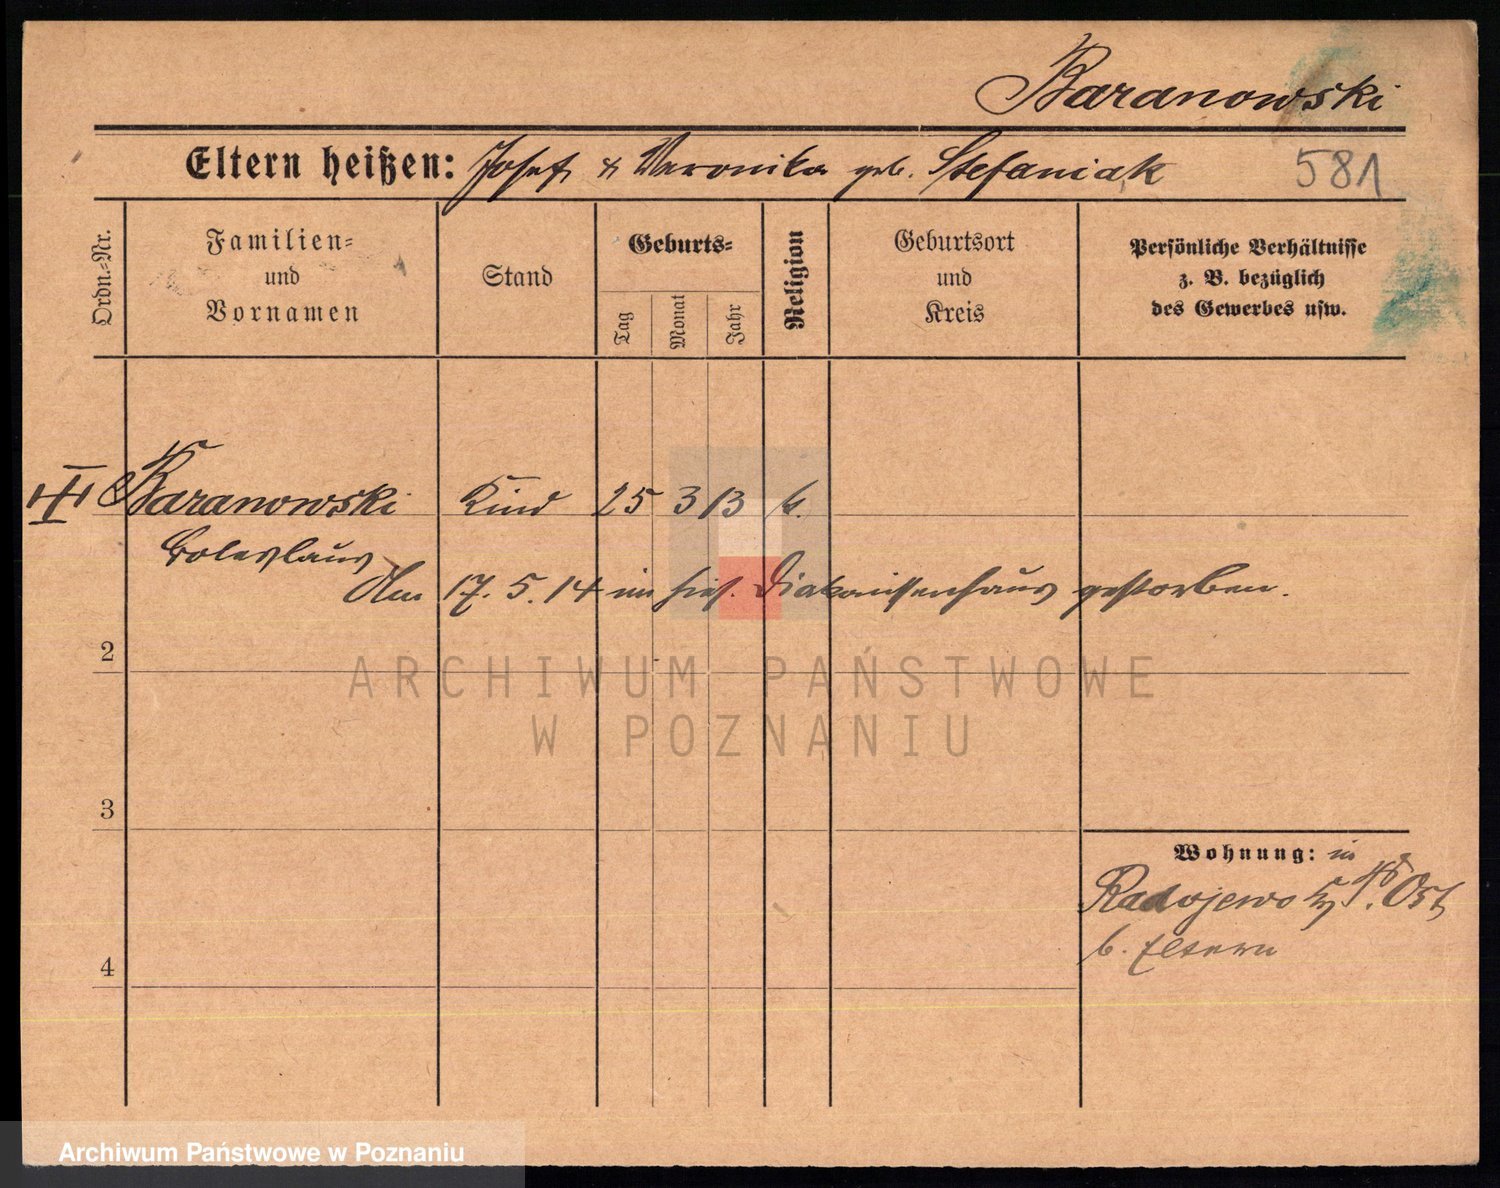 Baranowski
Eltern heißen: Josef & Veronika geb. Stefaniak
581
Ordn.-Nr.
Familien-
und
Vornamen
Stand
Geburts-
Tag
Monat
Jahr
Religion
Geburtsort
und
Kreis
Persönliche Verhältnisse
z. B. bezüglich
des Gewerbes usw.
Baranowski Kind 25 3 13 k.
Boleslaus
Am 17. 5. 14 im hies. Diakonissenhaus gestorben.
2
ARCHIWUM PAŃSTWOWE
W POZNANIU
3
Wohnung: in
Radojewo Ost
b. Eltern
4
Archiwum Państwowe w Poznaniu